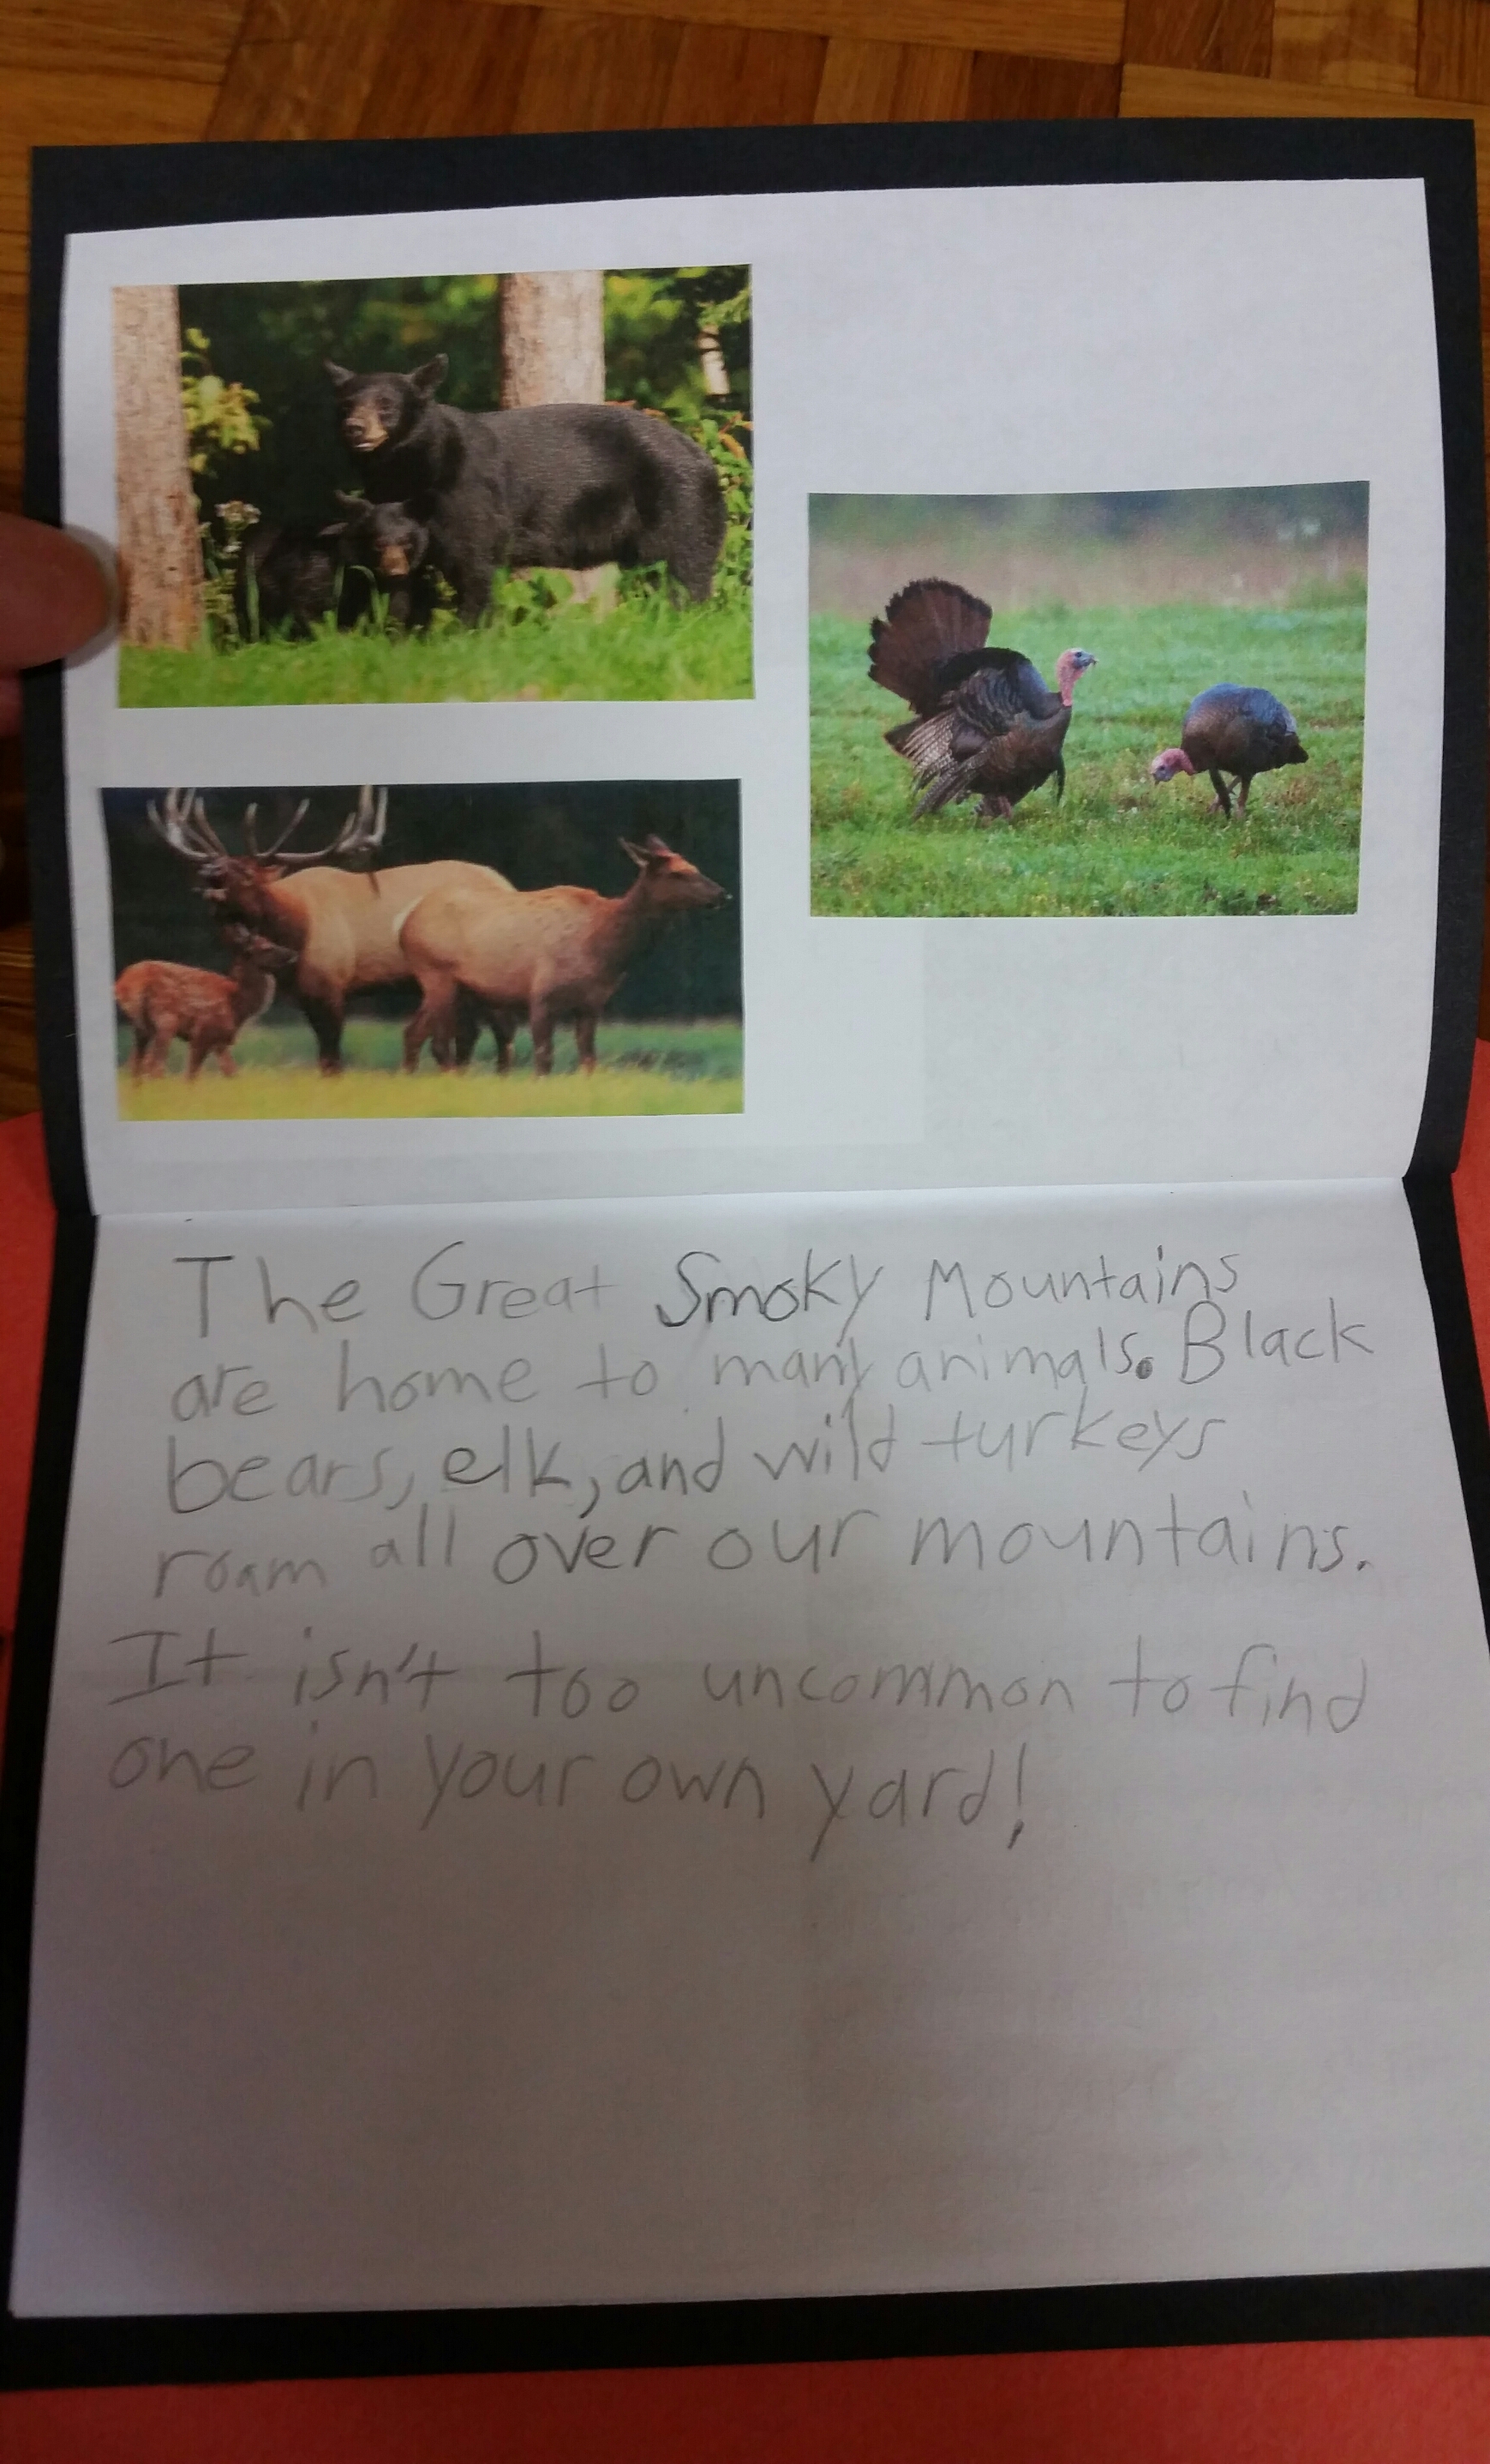 The Great Smoky Mountains
are home to many animals. Black
bears, elk, and wild turkeys
roam all over our mountains.
It isn't too uncommon to find
one in your own yard!